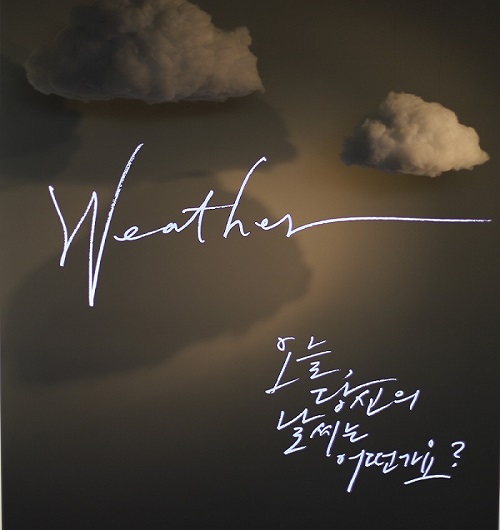 Weather
오늘,
당신의
날씨는
어떤가요?